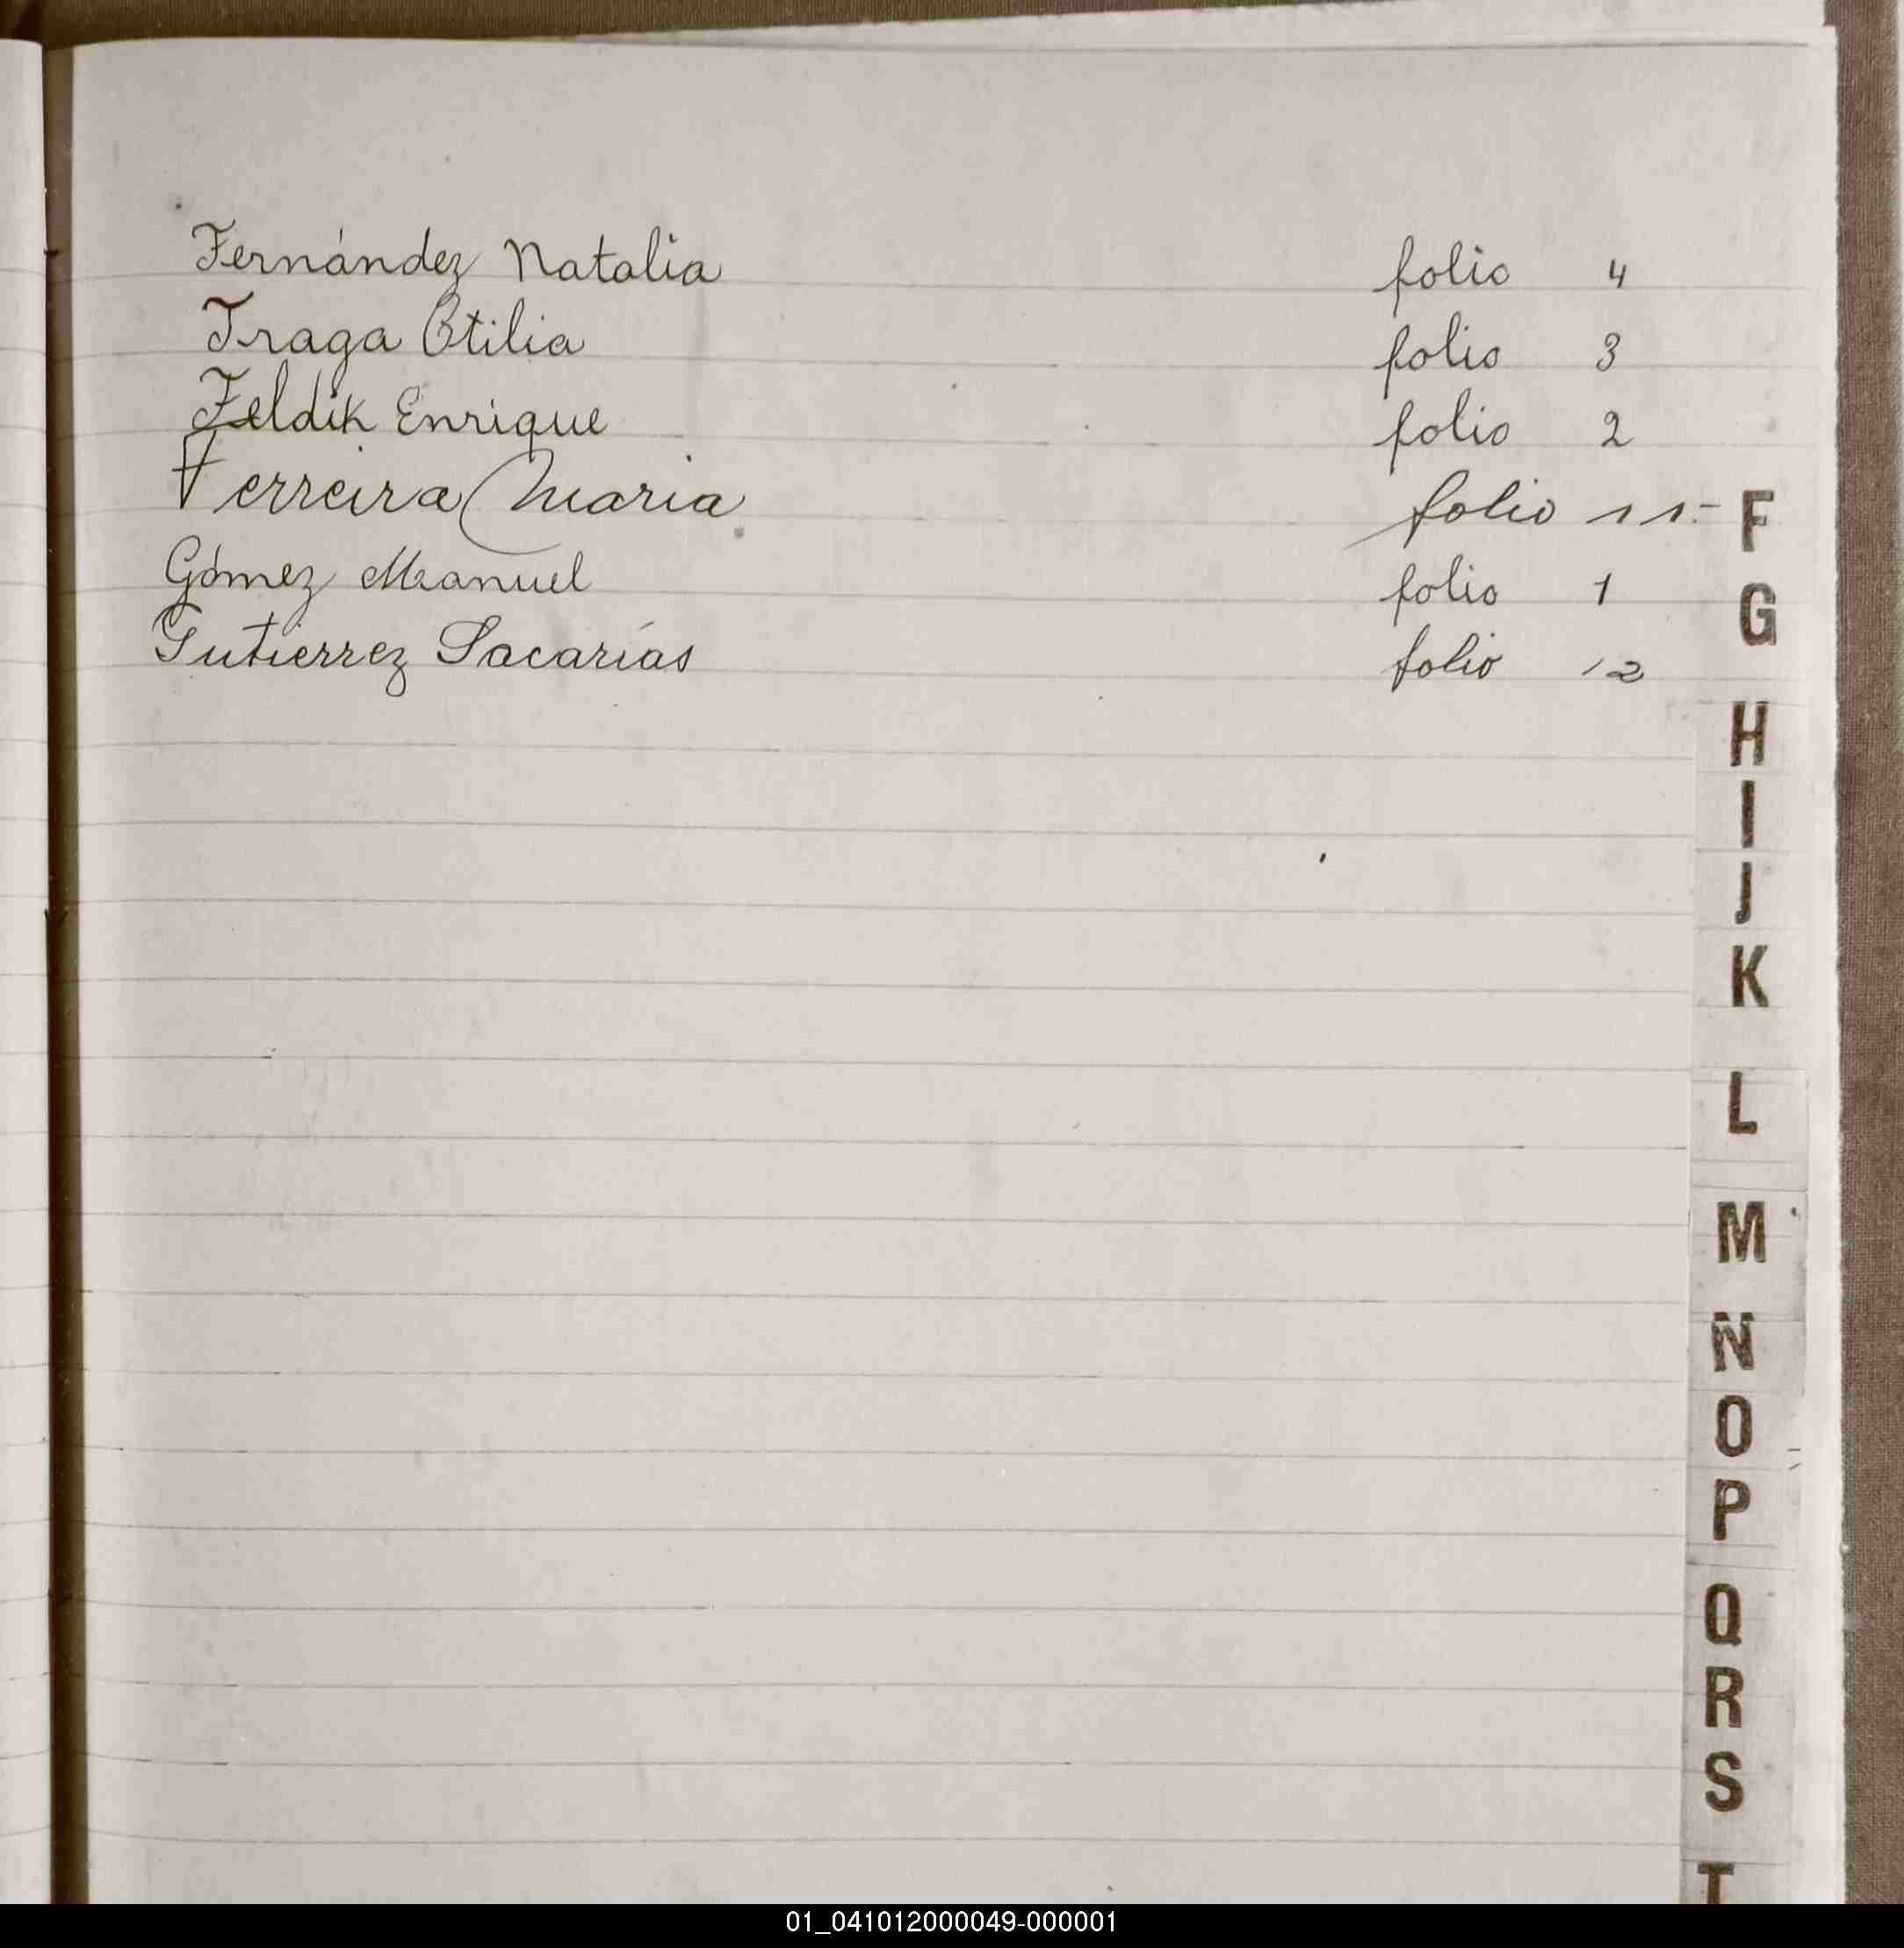 Fernández Natalia folio 4
Fraga Otilia folio 3
Feldik Enrique folio 2
Ferreira Maria folio 11.-
Gómez Manuel folio 1
Gutierrez Sacarías folio 12
F
G
H
I
J
K
L
M
N
O
P
Q
R
S
T
01_041012000049-000001